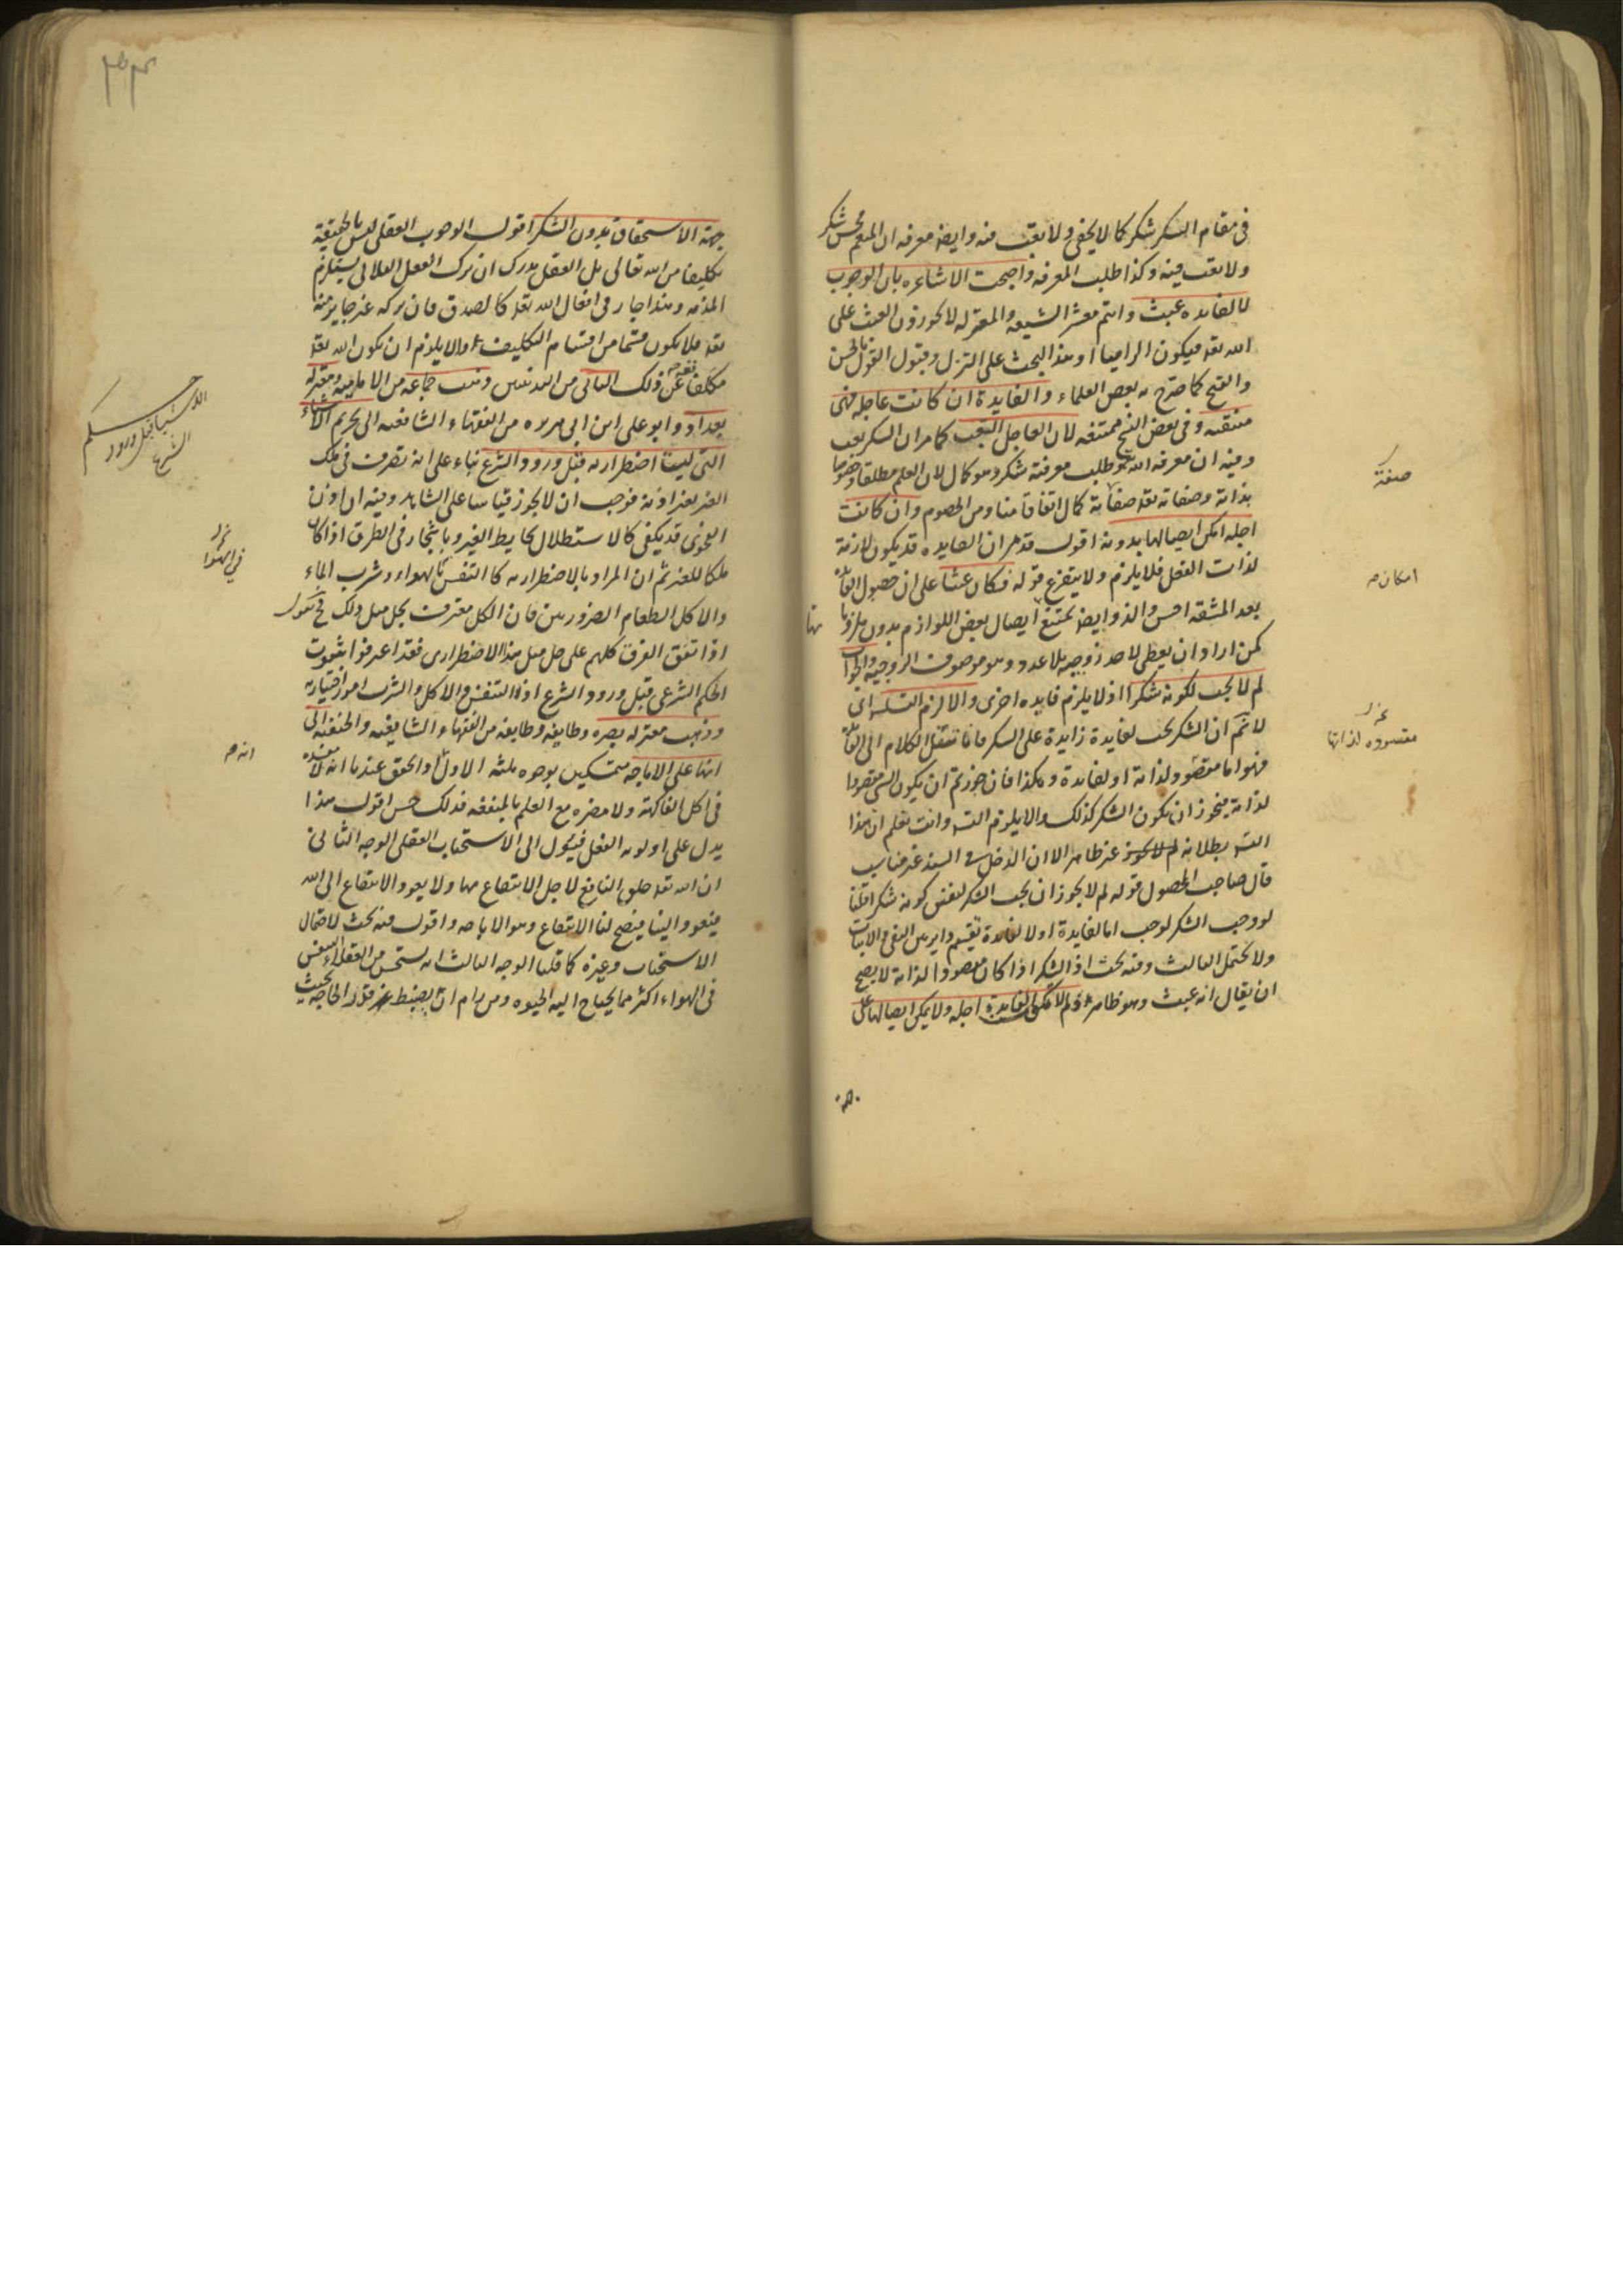 في مقام الشكر شكر كما لا يخفى ولا تعب فيه وايضا معرفة ان المنعم محسن شكر
ولا تعب فيه وكذا طلب المعرفة واحتجت الاشاعره بان الوجوب
لا لفايده عبث وانتم معشر الشيعه والمعتزله لا تجوزون العبث على
الله تعه فيكون الزاميا او هذا البحث على التنزل وقبول القول بالحسن
والقبح كما صرح به بعض العلماء والفايدة ان كانت عاجله فهي
منتفيه وفي بعض النسخ ممتنعه لان العاجل التعب كما مر ان الشكر تعب
وفيه ان معرفة الله تع وطلب معرفته شكر وهو كمال لان العلم مطلقا وخصوصا
بذاته وصفاته تعه صفاته كمال اتفاقا منا ومن الخصوم وان كانت
اجله امكن ايصالها بدونه اقول قد مر ان الفايده قد يكون لازمة
لذات الفعل فلا يلزم ولا يتفرع قوله فكان عبثا على ان حصول الفايده
بعد المشقه احسن والذ وايضا يمتنع ايصال بعض اللوازم بدون ملزوماتها
كمن اراد ان يعطي لاحد زوجيه بلا عدد وهو موصوف الزوجيه والجواب
لم لا يجب لكونه شكرا اذ لا يلزم فايده اخرى والا لزم التسلسل اي
لا نم ان الشكر يجب لفايدة زايدة على الشكر فانا ننقل الكلام الى الفايدة
فهو اما مقصود لذاته او لفايدة وهكذا فان جوزتم ان يكون الشئ مقصودا
لذاته فيجوز ان يكون الشكر كذلك والا يلزم التسلسل وانت تعلم ان هذا
التسلسل بطلانه غير ظاهر الا ان الدخل في السند غير مناسب
قال صاحب المحصول قوله لم لا يجوز ان يجب الشكر لنفس كونه شكرا قلنا
لو وجب الشكر لوجب اما لفايدة او لا لفايدة تقسيم داير بين النفي والاثبات
ولا يحتمل الثالث وفيه بحث اذ الشكر اذا كان مقصودا لذاته لا يصح
ان يقال انه عبث وهو ظاهر ولم لا تكون الفايدة اجله ولا يمكن ايصالها على
صفته
امكان
مقصوده لذاتها
جهة الاستحقاق بدون الشكر اقول الوجوب العقلي ليس بالحقيقة
تكليفا من الله تعالى بل العقل يدرك ان ترك الفعل الفلاني يستلزم
المذمه وهذا جار في افعال الله تعه كالصدق فان تركه غير جايز منه
تعه فلا يكون قسما من اقسام التكليف والا يلزم ان يكون الله تعه
مكلفا عن ذلك الثاني من التنبيهين ذهب جماعه من الاماميه ومعتزله
بغداد وابو علي ابن ابي هريره من الفقهاء والشافعيه الى تحريم الاشياء
التي ليست اضطراريه قبل ورود الشرع بناء على انه تصرف في ملك
الغير بغير اذنه فوجب ان لا يجوز قياسا على الشاهد وفيه ان اذن
الفحوى قد يكفي كالاستظلال بحايط الغير وباشجار في الطرق اذا كان
ملكا للغير ثم ان المراد بالاضطراريه كالتنفس بالهواء وشرب الماء
والاكل الطعام الضروريين فان الكل معترف بحل مثل ذلك فح نقول
اذا تفق الفرق كلهم على حل مثل هذا الاضطراري فقد اعترفوا بثبوت
الحكم الشرعي قبل ورود الشرع اذ التنفس والاكل والشرب امور اختيارية
وذهب معتزله بصره وطايفه وطايفه من الفقهاء الشافعيه والحنفيه الى
انها على الاباحه متمسكين بوجوه ثلثه الاول والحق عندنا انه لا مفسده
في اكل الفاكهة ولا مضره مع العلم بالمنفعه فذلك حسن اقول هذا
يدل على اولويه الفعل فيئول الى الاستحباب العقلي الوجه الثاني
ان الله تعه خلق النافع لاجل الانتفاع بها ولا يعود الانتفاع الى الله
فيعود الينا فيصح لنا الانتفاع وهو الاباحه واقول فيه بحث لاحتمال
الاستحباب وغيره كما قلنا الوجه الثالث انه يستحسن من العقلاء التنفس
في الهواء اكثر مما يحتاج اليه الحيوه ومن رام ان يضبط قدر الحاجه بحيث
حكم
الاشيا قبل ورود
الشرع
في الهوا
انه